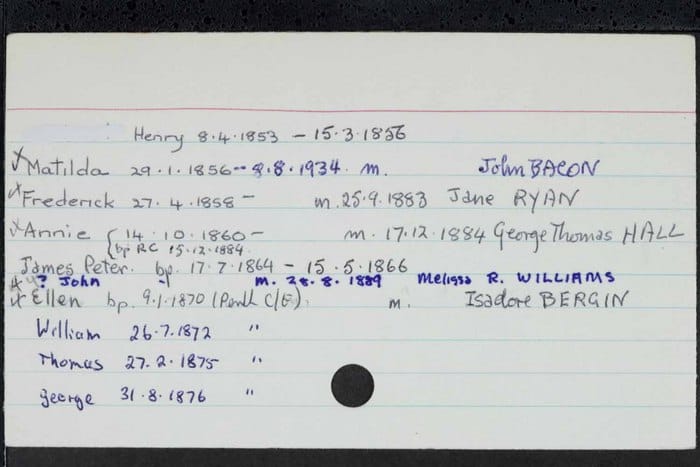 Henry 8.4.1853 – 15.3.1856
Matilda 29.1.1856 – 8.8.1934 m. John BACON
Frederick 27.4.1858 – m. 25.9.1883 Jane RYAN
Annie { 14.10.1860 – m. 17.12.1884 George Thomas HALL
{ bp RC 15.12.1884
James Peter. bp. 17.7.1864 – 15.5.1866
? John m. 28.8.1889 Melissa R. WILLIAMS
Ellen bp. 9.1.1870 (Perth C/E) m. Isadore BERGIN
William 26.7.1872 "
Thomas 27.2.1875 "
George 31.8.1876 "